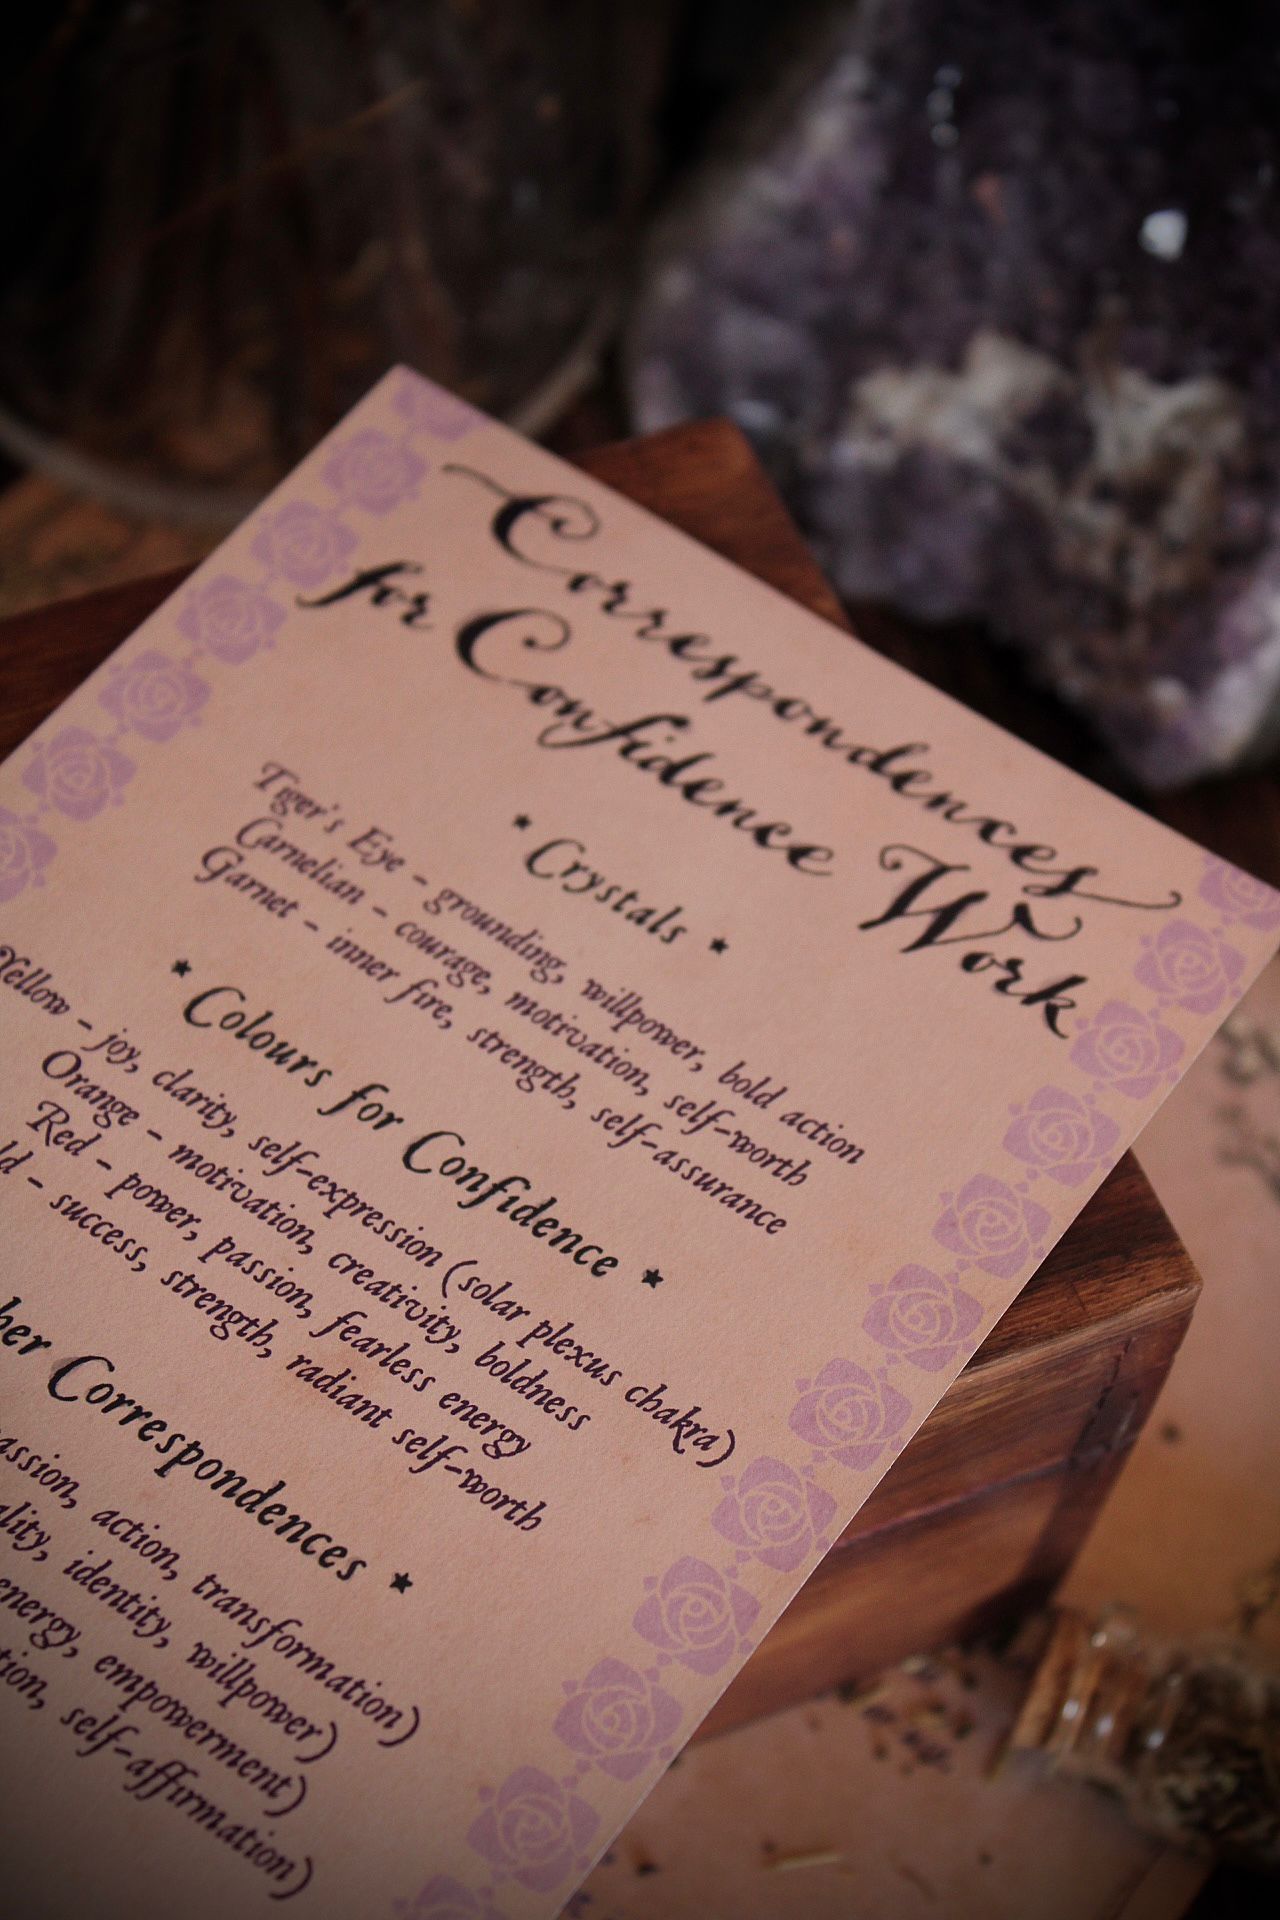 Correspondences
for Confidence Work
* Crystals *
Tiger's Eye - grounding, willpower, bold action
Carnelian - courage, motivation, self-worth
Garnet - inner fire, strength, self-assurance
* Colours for Confidence *
Yellow - joy, clarity, self-expression (solar plexus chakra)
Orange - motivation, creativity, boldness
Red - power, passion, fearless energy
ld - success, strength, radiant self-worth
her Correspondences *
assion, action, transformation)
ality, identity, willpower)
energy, empowerment)
tion, self-affirmation)